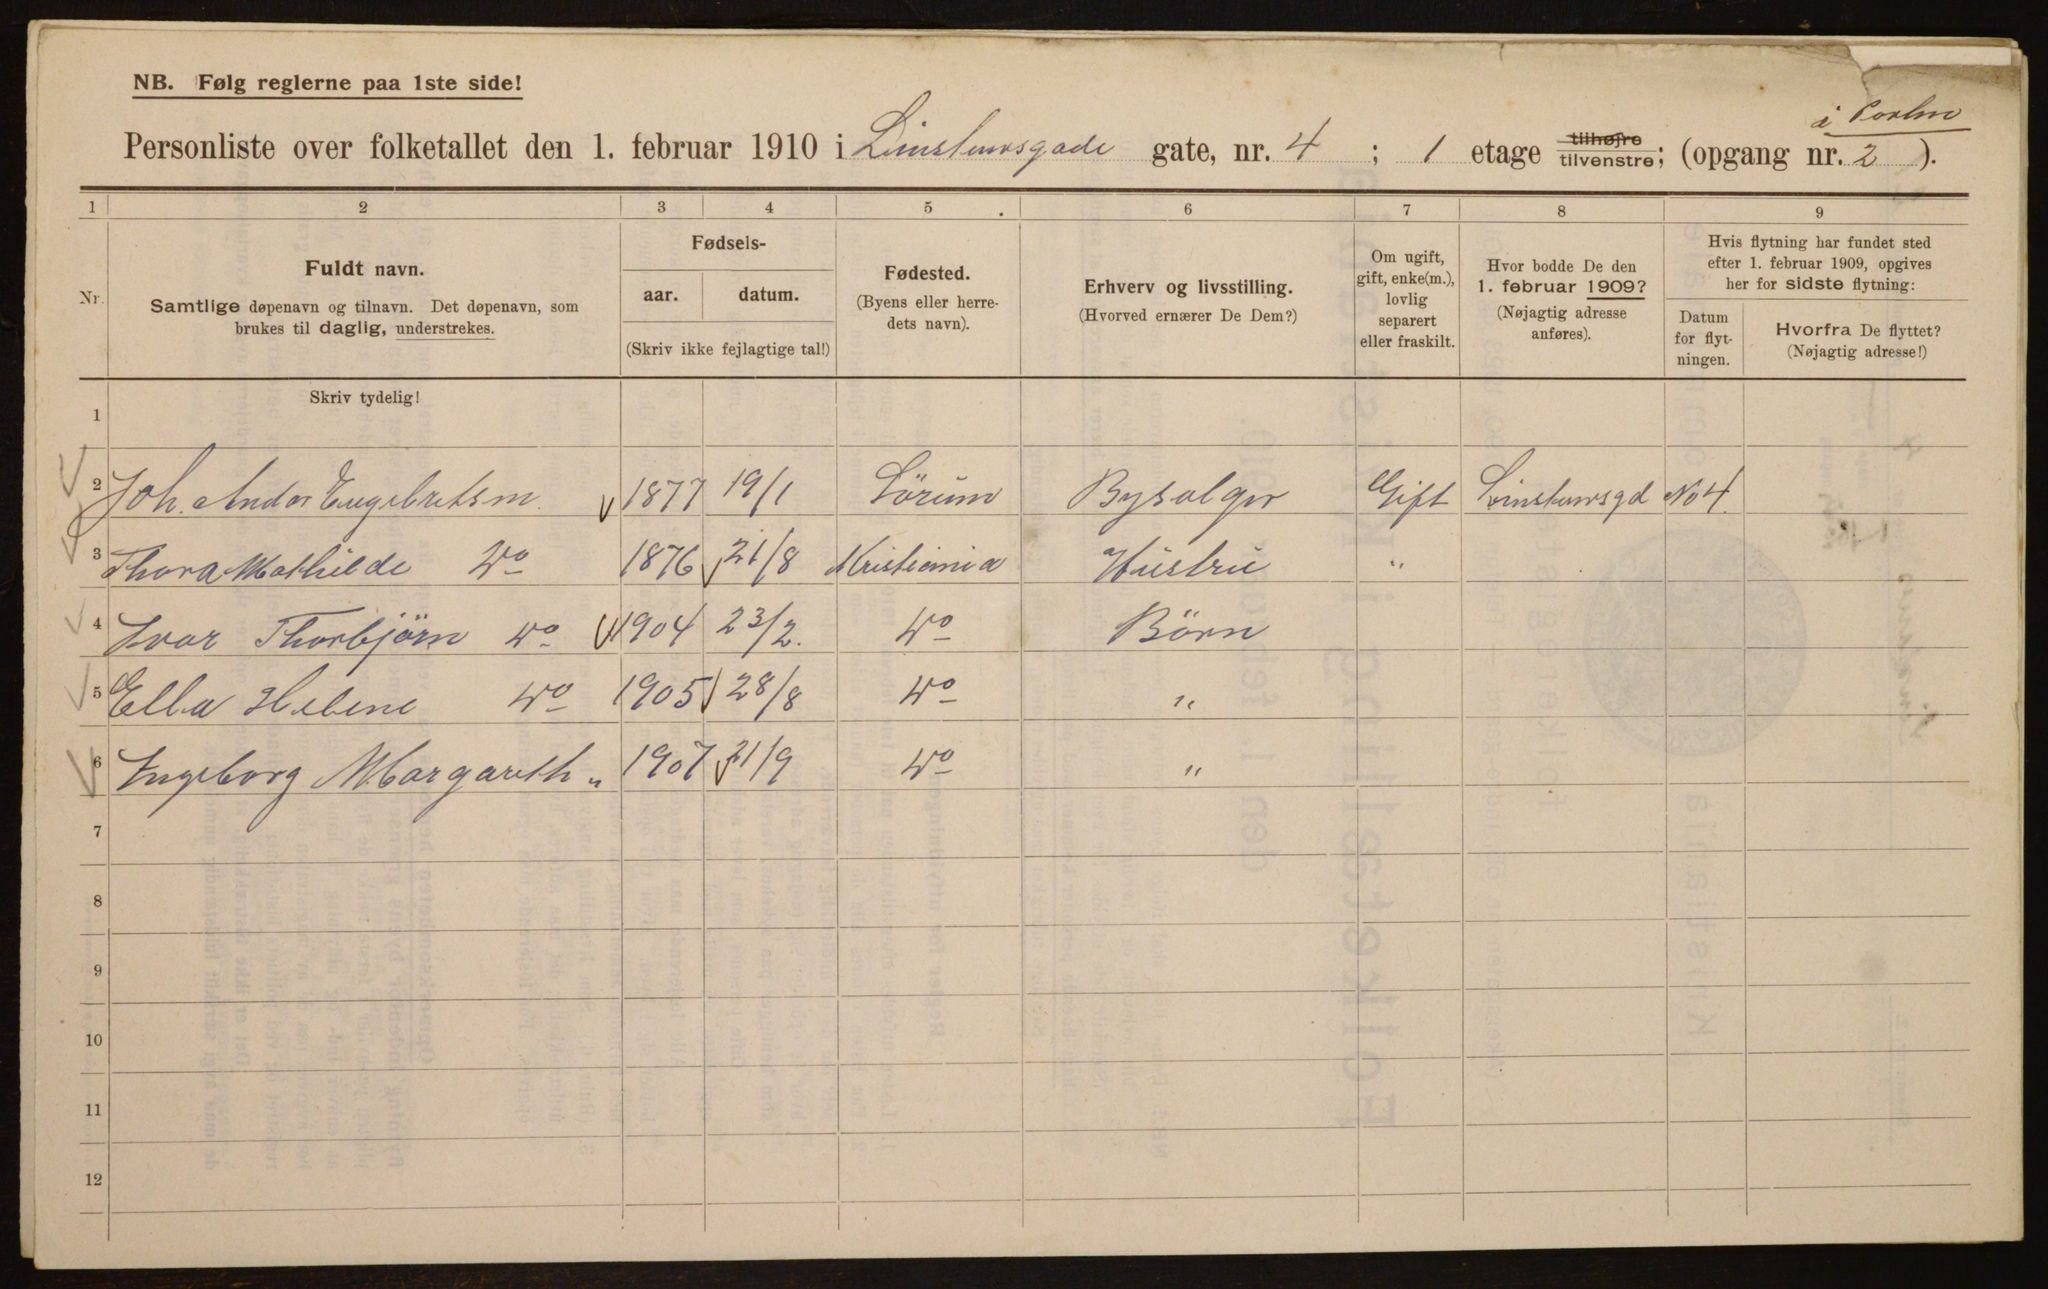 NB. Følg reglerne paa 1ste side!
i Porten
Personliste over folketallet den 1. februar 1910 i Linstowsgade gate, nr. 4 ; 1 etage tilhøjre tilvenstre; (opgang nr. 2 ).
1 2 3 4 5 6 7 8 9
Nr.
Fuldt navn.
Samtlige døpenavn og tilnavn. Det døpenavn, som
brukes til daglig, understrekes.
Fødsels-
aar. datum.
(Skriv ikke fejlagtige tal!)
Fødested.
(Byens eller herre-
dets navn).
Erhverv og livsstilling.
(Hvorved ernærer De Dem?)
Om ugift,
gift, enke(m.),
lovlig
separert
eller fraskilt.
Hvor bodde De den
1. februar 1909?
(Nøjagtig adresse
anføres).
Hvis flytning har fundet sted
efter 1. februar 1909, opgives
her for sidste flytning:
Datum
for flyt-
ningen.
Hvorfra De flyttet?
(Nøjagtig adresse!)
Skriv tydelig!
1
2 Joh. Andor Engebretsen. 1877 19/1 Sørum Bysælger Gift Linstowsgd No 4.
3 Thora Mathilde Do 1876 21/8 Kristiania Hustru "
4 Ivar Thorbjörn Do 1904 23/2. Do Börn
5 Ella Helene Do 1905 28/8 Do "
6 Ingeborg Margareth " 1907 21/9 Do "
7
8
9
10
11
12